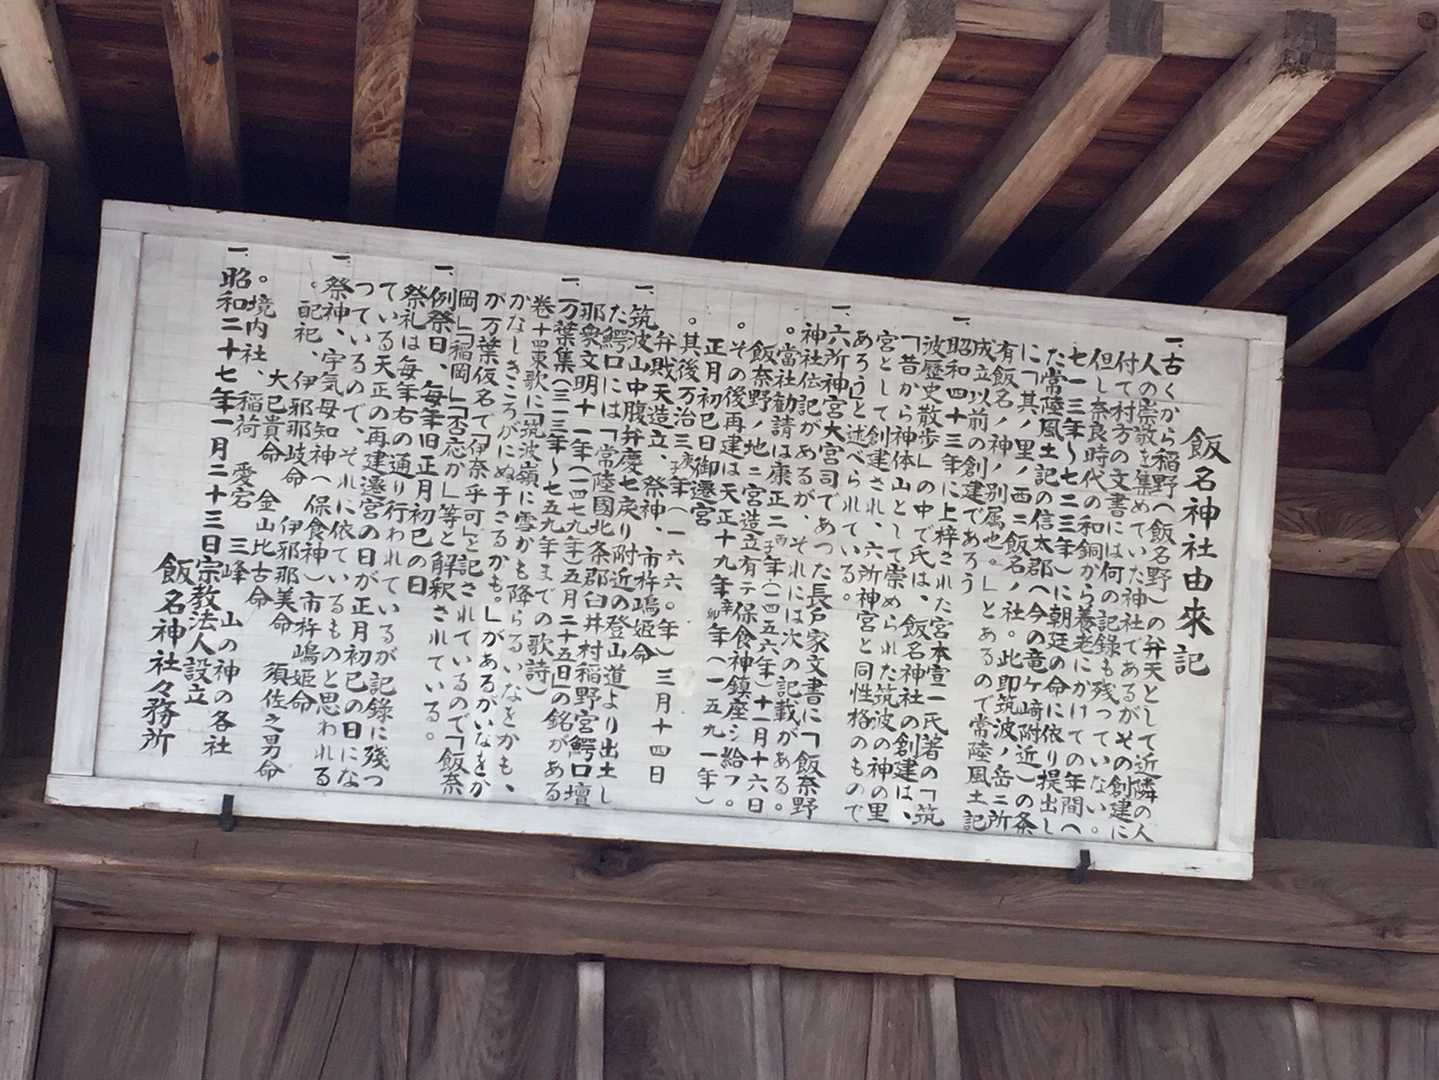 飯名神社由來記
一、古くから稲野へ(飯名野)の弁天として近隣の人
人の崇敬を集めていた神社であるがその創建に
付て村方の文書には何の記録も残っていない。
但し奈良時代の和銅から養老にかけての年間へ
七一三年〜七二三年)に朝廷の命に依り提出し
た常陸風土記の信太郡へ今の竜ケ﨑附近)の条
に「其ノ里ノ西ニ飯名ノ社。此即筑波ノ岳ニ所
有飯名ノ神ノ別属也。」とあるので常陸風土記
成立以前の創建であろう
一、昭和四十三年に上梓された宮本宣一氏著の「筑
波歴史散歩」の中で氏は、飯名神社の創建は、
「昔から神体山として崇められた筑波の神の里
宮として創建され、六所神宮と同性格のもので
あろう」と述べられている。
一、六所神宮大宮司であった長戸家文書に「飯奈野
神社伝記があるが、それには次の記載がある。
。當社勧請は康正二丙子年(一四五六年)十一月十六日
飯奈野ノ地ニ宮造立有テ保食神鎮座シ給フ。
。その後再建は天正十九年辛卯年(一五九一年)
正月初巳日御遷宮
。其後万治三庚子年(一六六。年)三月十四日
弁戝天造立、祭神、市杵嶋姫命
一、筑波山中腹弁慶七戻り附近の登山道より出土し
た鰐口には「常陸國北条郡臼井村稲野宮鰐口壇
那衆文明十一年(一四七九年)五月二十五日」の銘がある
一、万葉集(三一三年〜七五九年までの歌詩)
巻十四東歌に「筑波嶺に雪かも降らるいなをかも、
かなしきころがにぬ干さるかも。」があるがいなをか
が万葉仮名で「伊奈乎可」と記されているので「飯奈
岡」「稲岡」「否応か」等と解釈されている。
一、例祭日、毎年旧正月初巳の日
祭礼は毎年右の通り行われているが記録に残っ
ている天正の再建遷宮の日が正月初巳の日にな
っているので、それに依ているものと思われる
一、祭神、宇気母知神へ保食神)市杵嶋姫命
。配祀、伊邪那岐命 伊邪那美命 須佐之男命
大己貴命 金山比古命
。境内社、稲荷 愛宕 三峰 山の神の各社
一、昭和二十七年一月二十三日宗教法人設立
飯名神社々務所